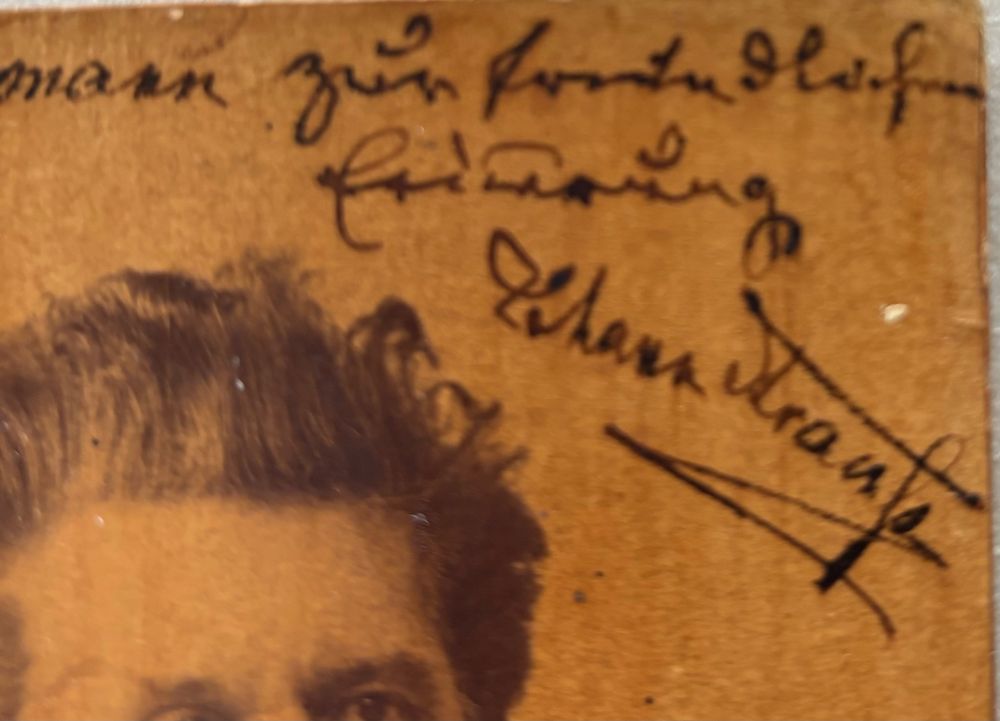 mann zur freundlichen
Erinerung
Johann Strauß